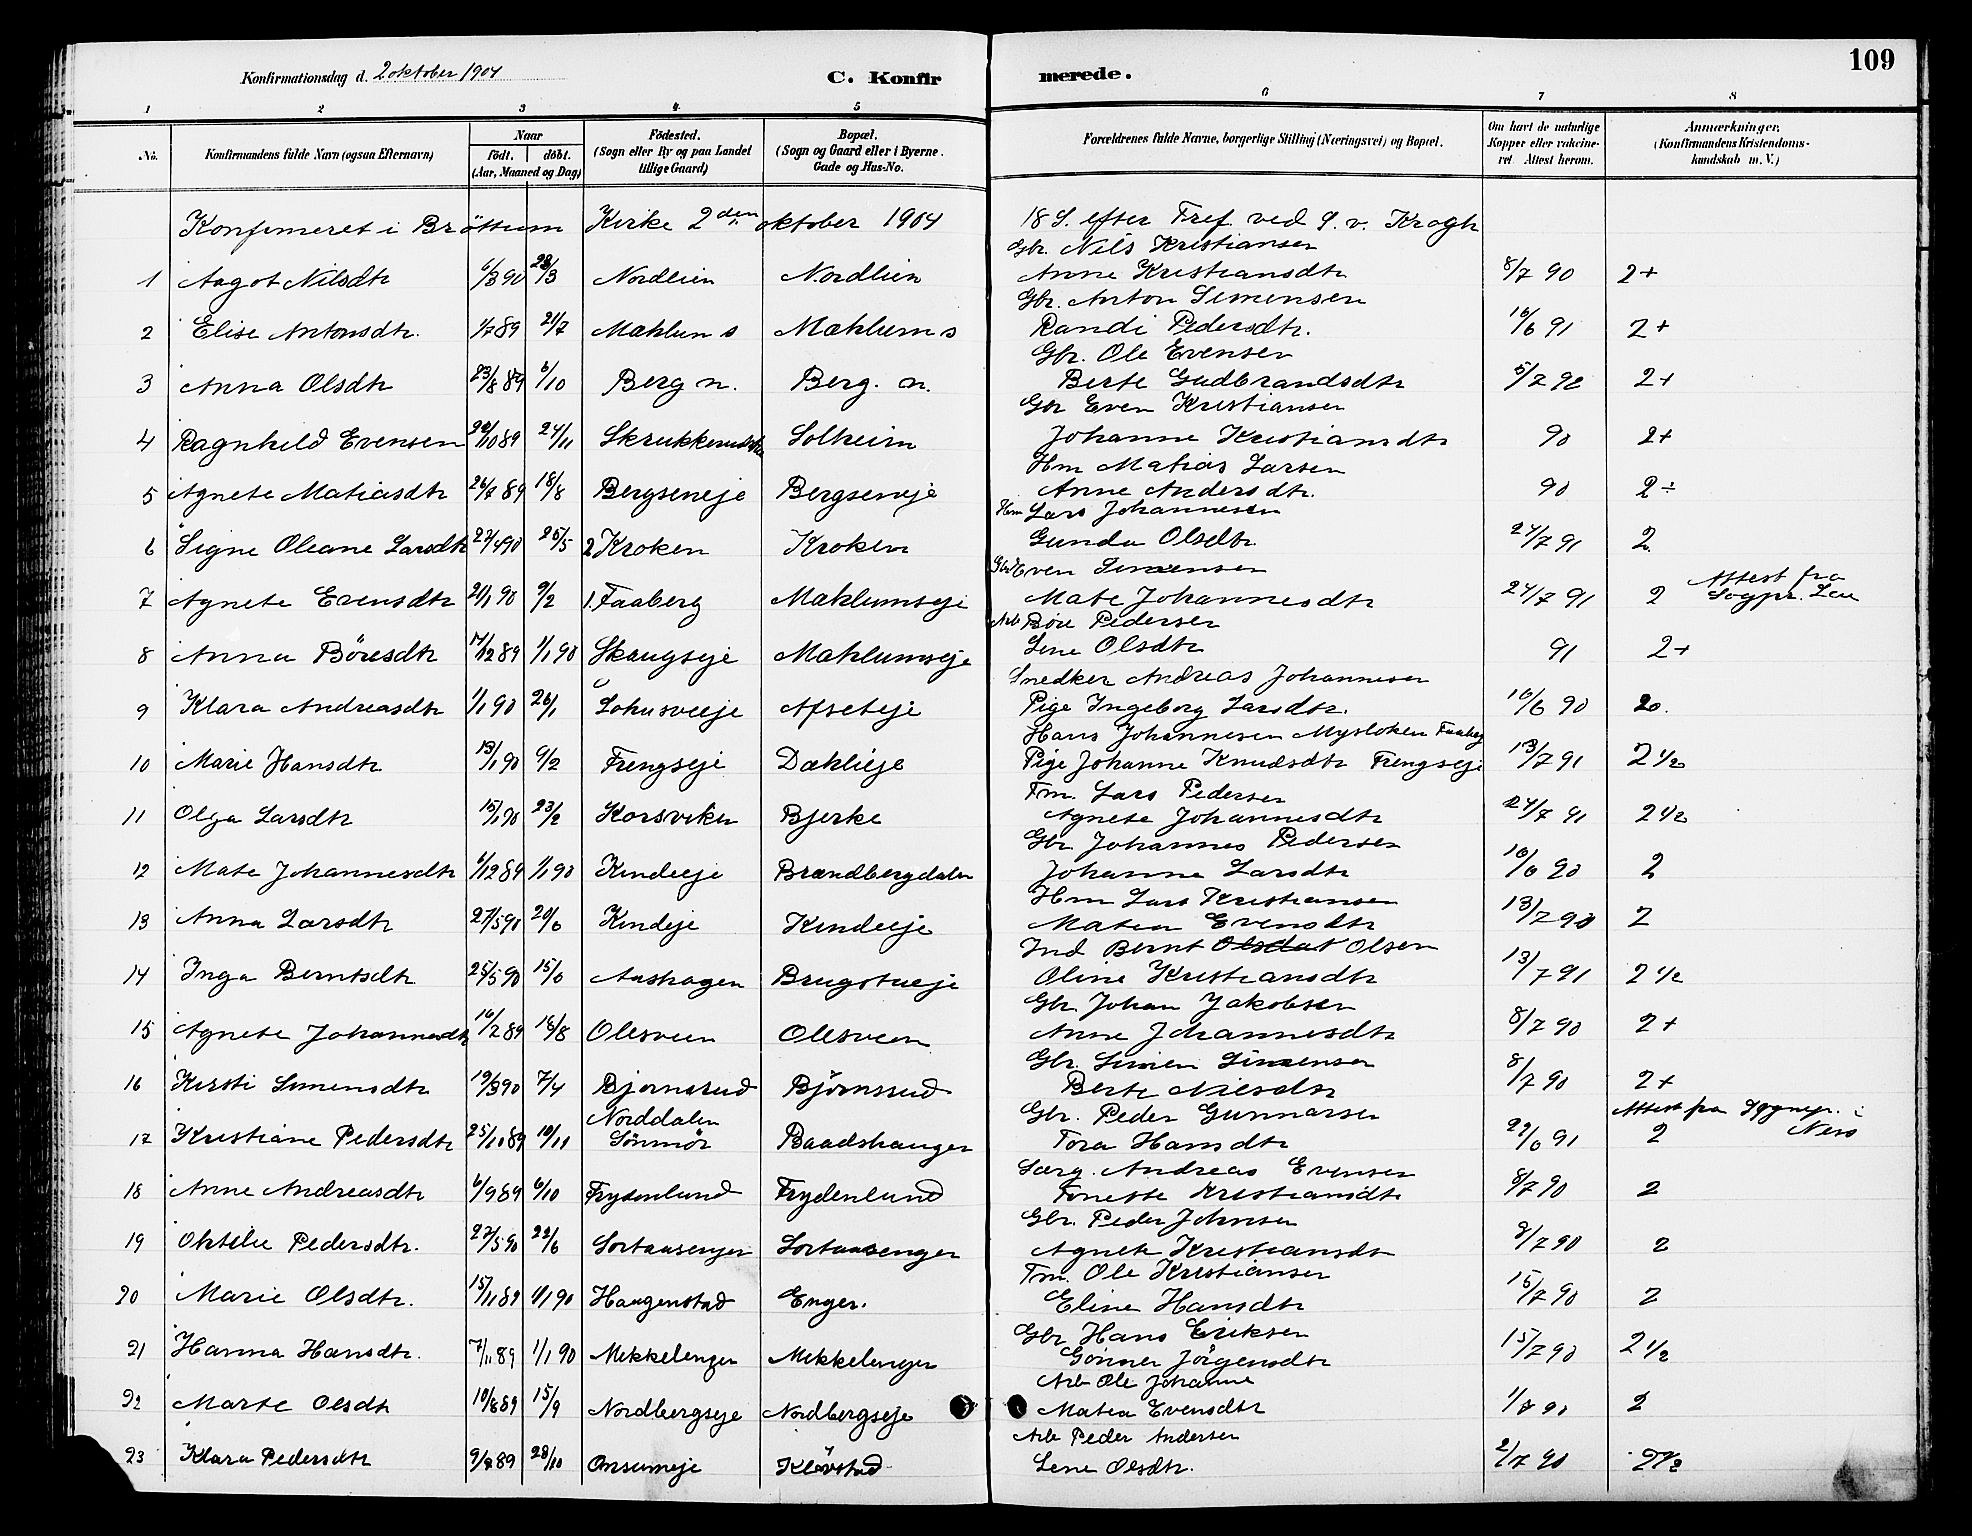 109
Konfirmationsdag d. 2 oktober 1904
C. Konfirmerede.
1 2 3 4 5 6 7 8
No. Konfirmandens fulde Navn (ogsaa Efternavn) Naar födt. döbt. (Aar, Maaned og Dag) Födested. (Sogn eller By og paa Landet tillige Gaard) Bopæl. (Sogn og Gaard eller i Byerne Gade og Hus-No. Forældrenes fulde Navne, borgerlige Stilling (Næringsvei) og Bopæl. Om havt de naturlige Kopper eller vaccineret. Attest herom. Anmærkninger. (Konfirmandens Kristendomskundskab m. V.)
Konfirmeret i Bröttum Kirke 2den oktober 1904 18 S. efter Tref. ved S. v. Krogh
Gbr. Nils Kristiansen
1 Aagot Nilsdtr 6/3 90 23/3 Nordlien Nordlien Anne Kristiansdtr 8/7 90 2+
Gbr. Anton Simensen
2 Elise Antonsdtr. 1/7 89 21/7 Mæhlum s Mæhlum s Randi Pedersdtr. 16/6 91 2+
Gbr. Ole Evensen
3 Anna Olsdtr 23/8 89 6/10 Berg n. Berg. n. Berte Gudbrandsdtr 5/7 92 2+
Gbr Even Kristiansen
4 Ragnhild Evensen 20/10 89 24/11 Solheim Johanne Kristiansdtr 90 2+
Hm Matias Larsen
5 Agnete Matiasdtr 26/7 89 18/8 Bergseneje Bergseneje Anne Andersdtr. 90 2÷
Hm Lars Johannesen
6 Signe Oleane Larsdtr 27/4 90 25/5 2 Kroken Kroken Gunda Olsdtr. 24/7 91 2
Gbr Even Simensen
7 Agnete Evensdtr 21/1 90 9/2 1. Faaberg Mæhlumseje Mate Johannesdtr 24/7 91 2 Attest fra Sogpr.
Arb Böre Pedersen
8 Anna Böresdtr 17/12 89 1/1 90 Skaugseje Mæhlumseje Lene Olsdtr 91 2+
Snedker Andreas Johannesen
9 Klara Andreasdtr 1/1 90 26/1 Lohusveeje Afseteje Pige Ingeborg Larsdtr. 16/6 90 2.
Hans Johannesen Mysloken Faaberg
10 Marie Hansdtr 13/1 90 9/2 Frengseje Dæhlieje Pige Johanne Knudsdtr Frengseje 13/7 91 2 1/2
Fm. Lars Pedersen
11 Olga Larsdtr 15/1 90 23/2 Korsviken Bjerke Agnete Johannesdtr 24/7 91 2 1/2
Gbr Johannes Pedersen
12 Mate Johannesdtr 6/12 89 1/1 90 Kindeeje Brandbergdalen Johanne Larsdtr 16/6 90 2
Hm Lars Kristiansen
13 Anna Larsdtr 27/5 90 20/6 Kindeje Kindeeje Matea Evensdtr 13/7 90 2
Ind Bernt Olsdat Olsen
14 Inga Berntsdtr 25/5 90 15/6 Aashagen Brugstueje Oline Kristiansdtr 13/7 91 2 1/2
Gbr. Johan Jakobsen
15 Agnete Johannesdtr 16/7 89 18/8 Olesveen Olesveen Anne Johannesdtr 8/7 90 2+
Gbr. Simen Simensen
16 Kirsti Simensdtr 19/3 90 7/4 Bjørnsrud Bjørnsrud Berte Nilsdtr 8/7 90 2+
Norddalen Gbr. Peder Gunnarsen Attest fra Sognepr. i
17 Kristiane Pedersdtr 25/10 89 10/11 Sönmör Baadshaugen Tora Hansdtr 22/6 91 2
Særg. Andreas Evensen
18 Anne Andreasdtr 6/9 89 6/10 Frydenlund Frydenlund Tonette Kristiansdtr 8/7 90 2
Gbr. Peder Johnsen
19 Oktilie Pedersdtr. 27/5 90 22/6 Sortaasenger Sortaasenger Agnete Kristiansdtr 8/7 90 2
Fm. Ole Kristiansen
20 Marie Olsdtr. 15/11 89 1/1 90 Haugenstad Enger. Eline Hansdtr 15/7 90 2
Gbr Hans Eriksen
21 Hanna Hansdtr. 7/11 89 1/1 90 Mikkelenger Mikkelenger Gönner Jörgensdtr 15/7 90 2 1/2
Arb Ole Johanne
22 Marte Olsdtr 10/8 89 15/9 Nordbergseje Nordbergseje Matea Evensdtr 1/7 90 2
Arb Peder Andersen
23 Klara Pedersdtr 9/7 89 28/10 Onsumeje Kløvstad Lene Olsdtr. 2/7 90 2 1/2